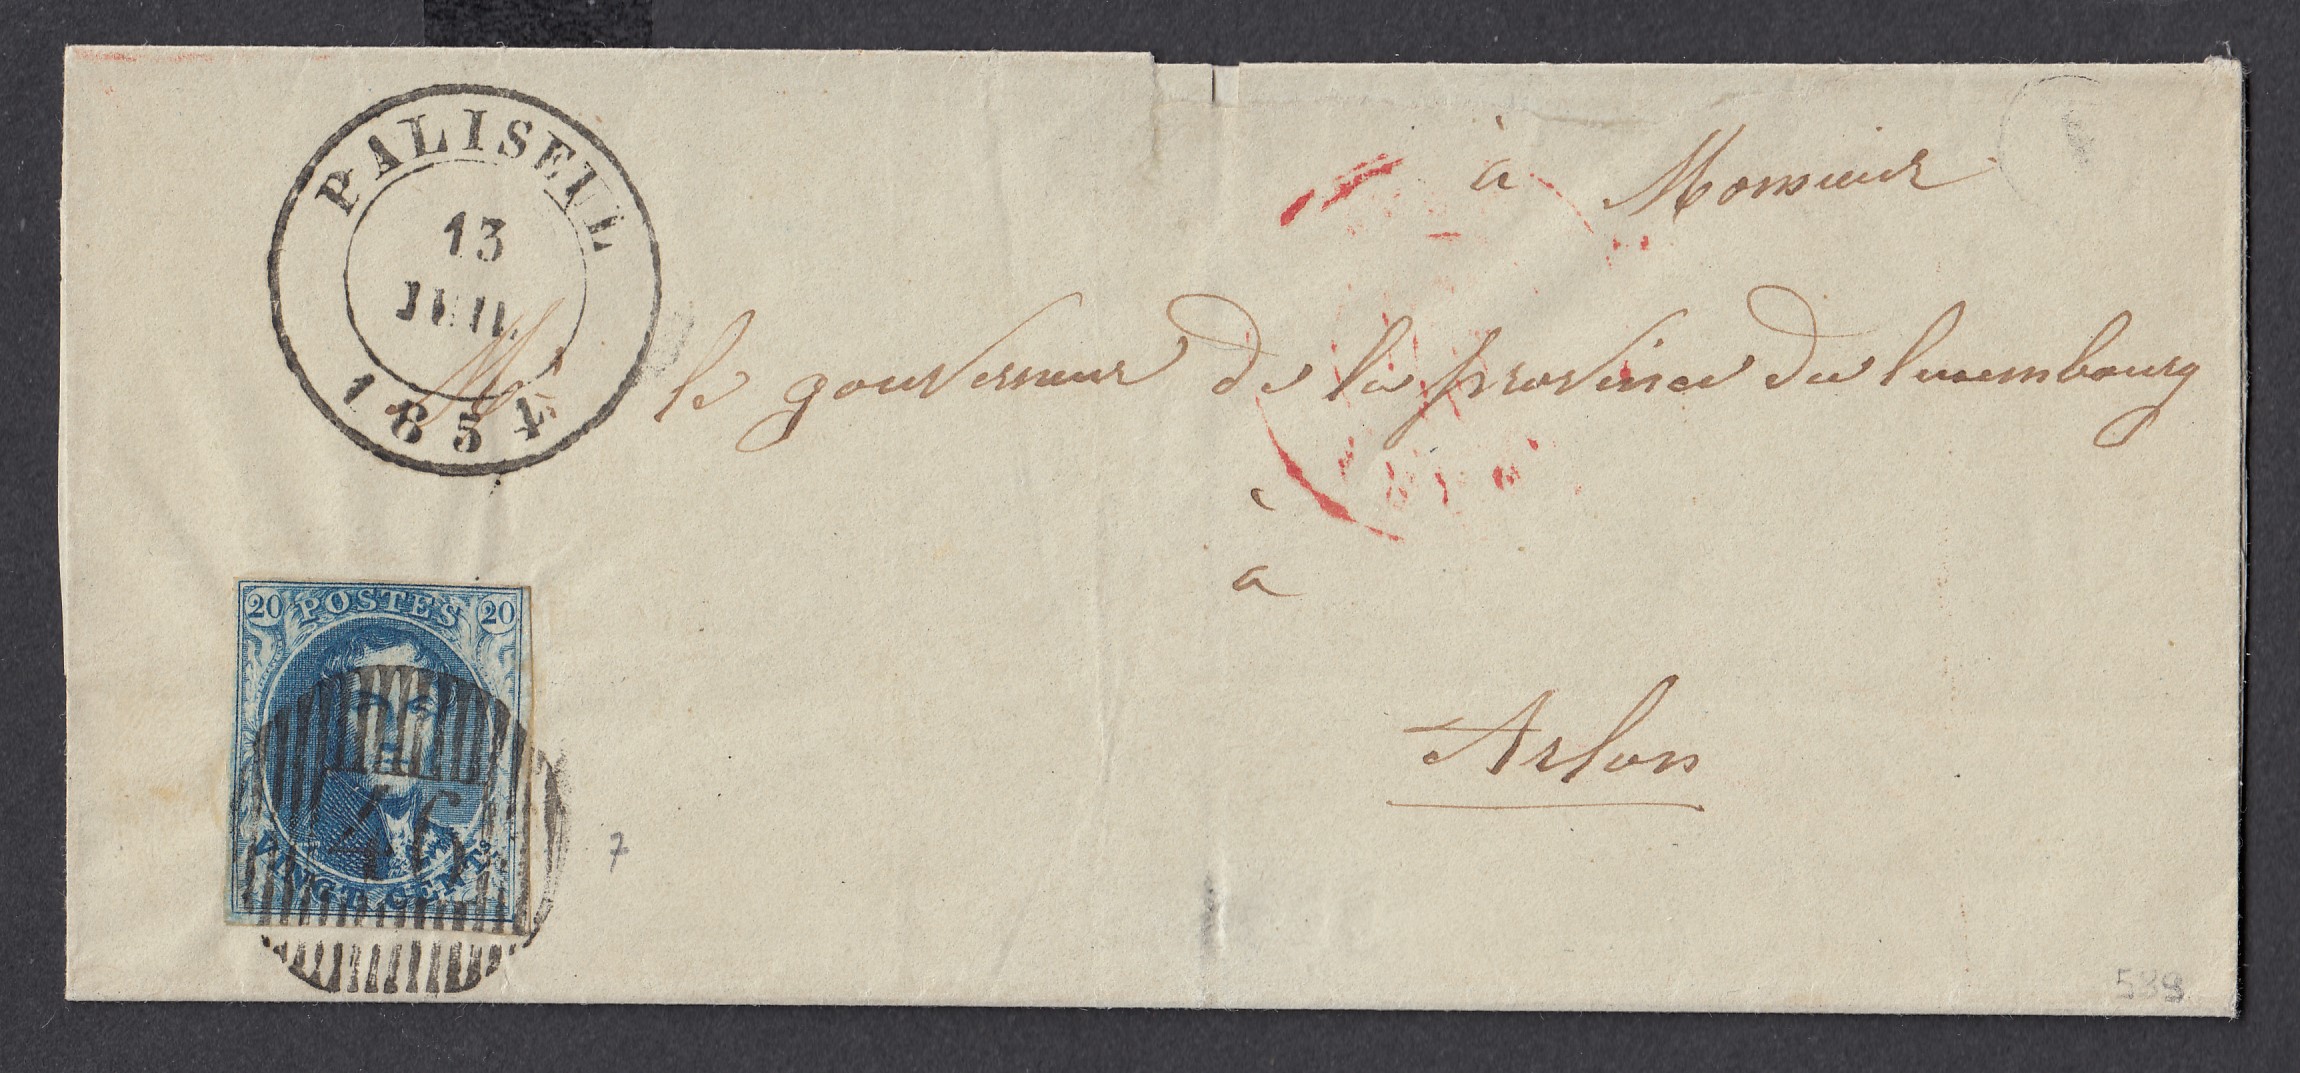 PALISEUL
13
JUIL
1854
à Monsieur
Mr le gouverneur de la province du luxembourg
à
Arlon
20 POSTES 20
46
VINGT CENTS
7
589